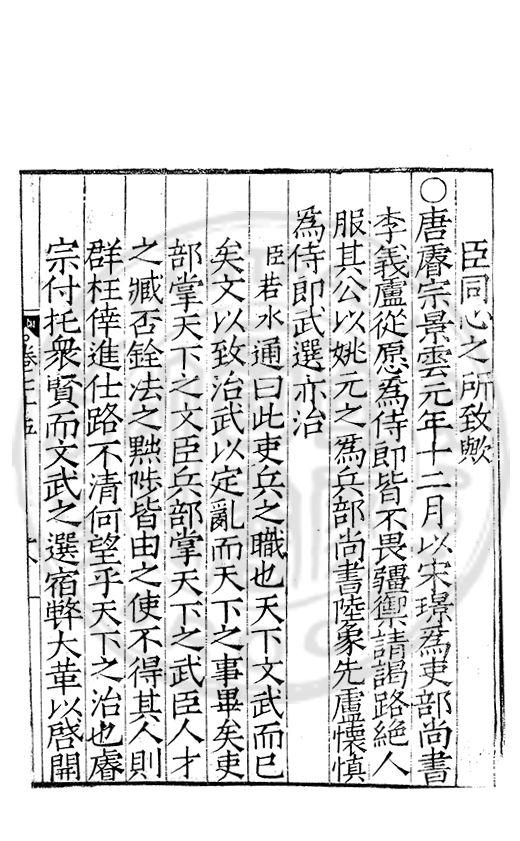 臣同心之所致歟
○唐睿宗景雲元年十二月以宋璟爲吏部尚書
李義盧從愿爲侍郎皆不畏彊禦請謁路絶人
服其公以姚元之爲兵部尚書陸象先盧懷慎
爲侍郎武選亦治
臣若水通曰此吏兵之職也天下文武而已
矣文以致治武以定亂而天下之事畢矣吏
部掌天下之文臣兵部掌天下之武臣人才
之臧否銓法之黜陟皆由之使不得其人則
群枉倖進仕路不清何望乎天下之治也睿
宗付托衆賢而文武之選宿弊大革以啓開